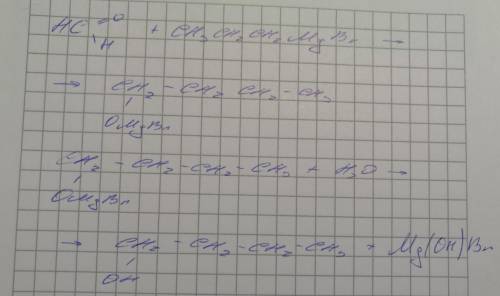 HC=O + CH3CH2CH2MgBr →
H
→ CH2 - CH2 CH2 - CH3
OMgBr
CH2 - CH2 - CH2 - CH3 + H2O →
OMgBr
→ CH2 - CH2 - CH2 - CH3 + Mg(OH)Br
OH